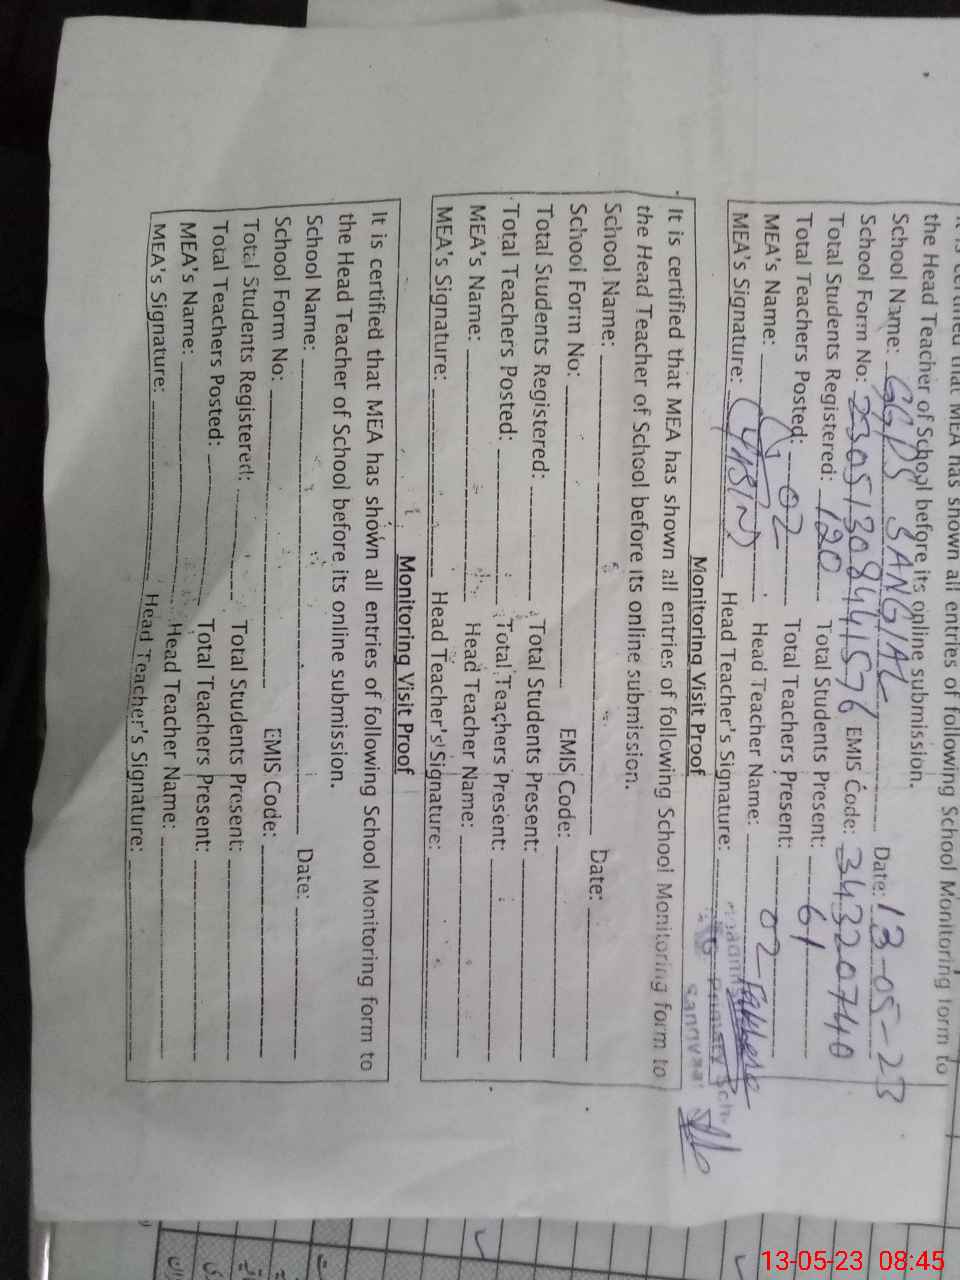 It is certified that MEA has shown all entries of following School Monitoring form to
the Head Teacher of School before its online submission.
School Name: GGPS SANGIAL Date: 13-05-23
School Form No: 23051308441576 EMIS Code: 34320740
Total Students Registered: 120 Total Students Present: 61
Total Teachers Posted: 02 Total Teachers Present: 02
MEA's Name: Head Teacher Name:
MEA's Signature: Head Teacher's Signature:
Monitoring Visit Proof
It is certified that MEA has shown all entries of following School Monitoring form to
the Head Teacher of School before its online submission.
School Name: Date:
School Form No: EMIS Code:
Total Students Registered: Total Students Present:
Total Teachers Posted: Total Teachers Present:
MEA's Name: Head Teacher Name:
MEA's Signature: Head Teacher's Signature:
Monitoring Visit Proof
It is certified that MEA has shown all entries of following School Monitoring form to
the Head Teacher of School before its online submission.
School Name: Date:
School Form No: EMIS Code:
Total Students Registered: Total Students Present:
Total Teachers Posted: Total Teachers Present:
MEA's Name: Head Teacher Name:
MEA's Signature: Head Teacher's Signature:
13-05-23 08:45